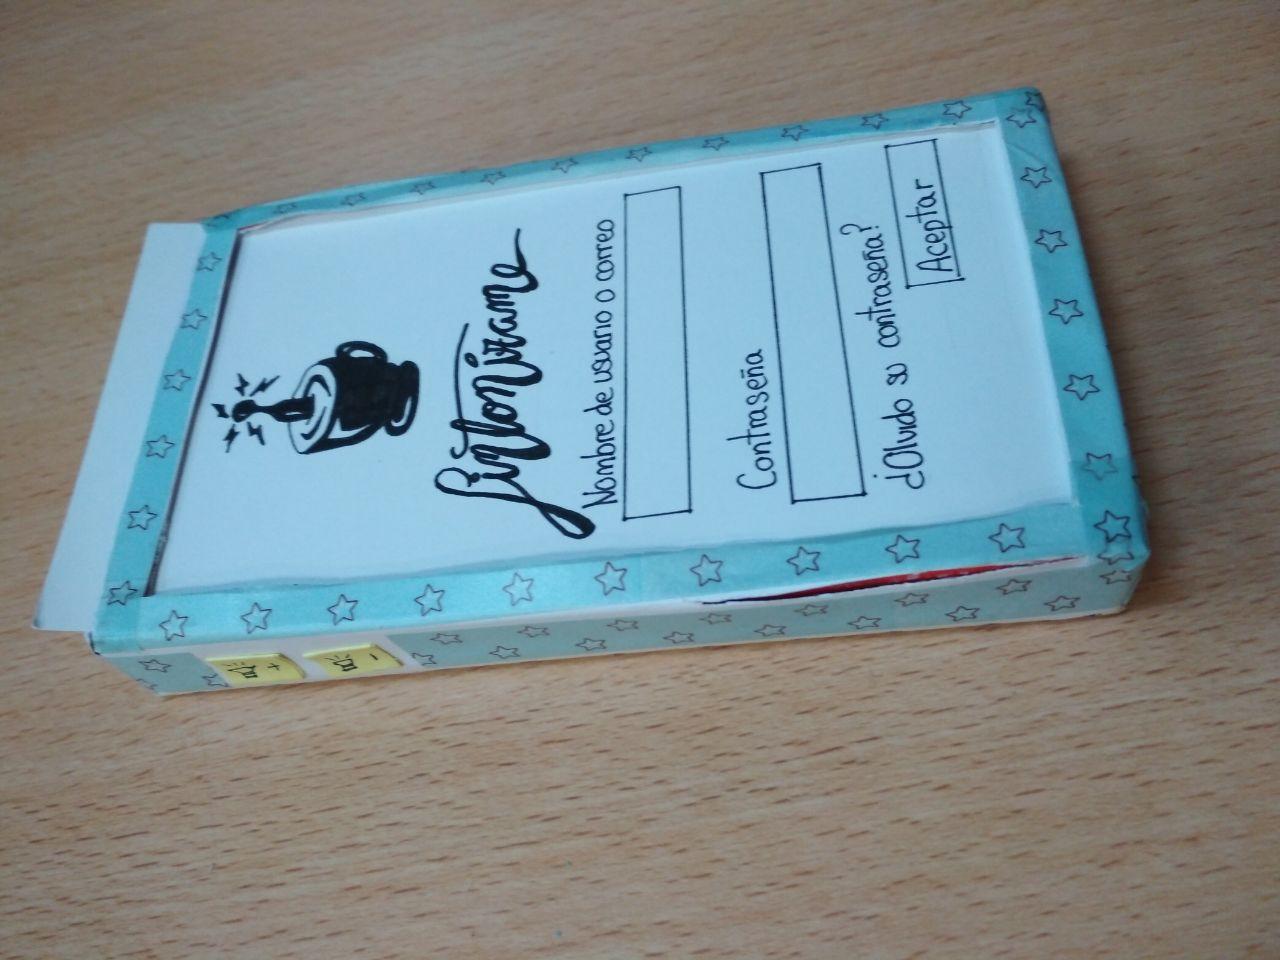 Sintonízame
Nombre de usuario o correo
Contraseña
¿Olvido su contraseña?
Aceptar
+
-